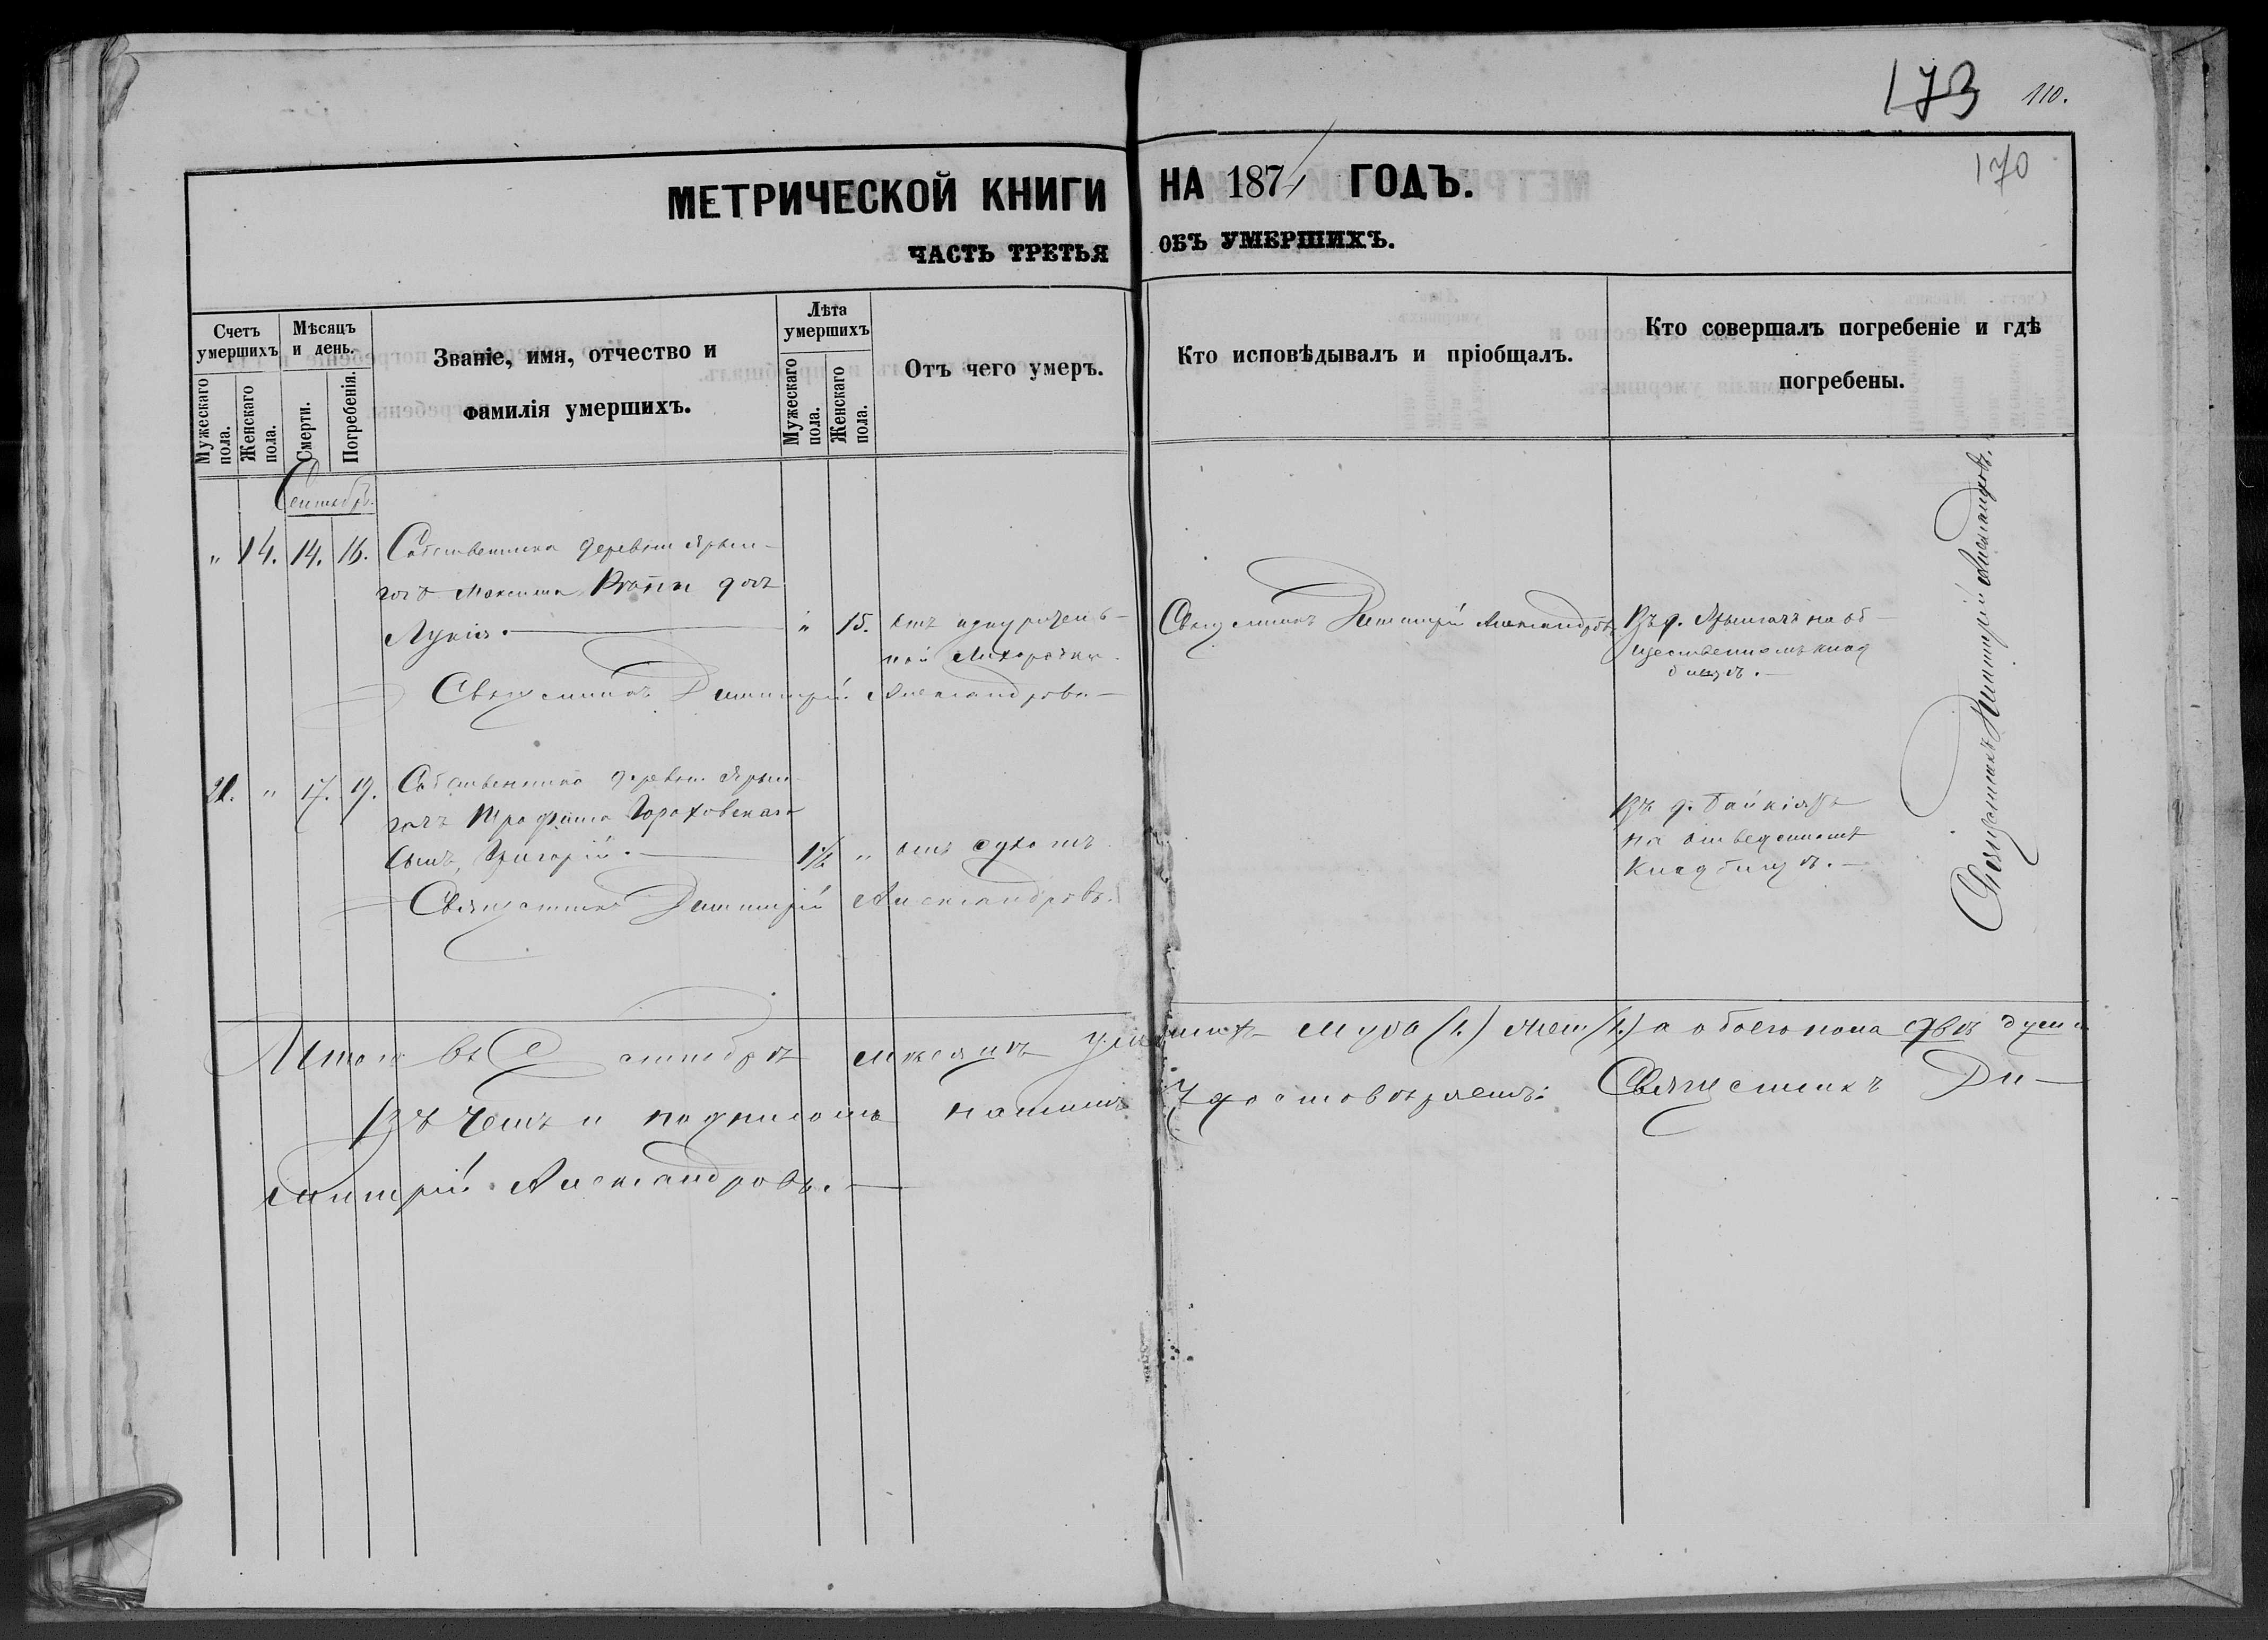 173 110.
170
МЕТРИЧЕСКОЙ КНИГИ НА 1871 ГОДЪ.
ЧАСТЬ ТРЕТЬЯ ОБЪ УМЕРШИХЪ.
Счетъ умершихъ
Мужескаго пола.
Женскаго пола.
Мѣсяцъ и день.
Смерти.
Погребенія.
Званіе, имя, отчество и
фамилія умершихъ.
Лѣта умершихъ
Мужескаго пола.
Женскаго пола.
Отъ чего умеръ.
Кто исповѣдывалъ и пріобщалъ.
Кто совершалъ погребеніе и гдѣ
погребены.
Сентябрь.
" 14. 14. 16. Собственника деревни Ярыл-
гачъ Максима дочь
Лукія. " 15. отъ изнуритель-
ной лихорадки.
Священникъ Димитрій Александровъ
Въ д. Ярылгачъ на об-
щественномъ клад
бищѣ.
Священникъ Димитрій Александровъ
21. " 17. 19. Собственника деревни Ярыл-
гачъ Трофима Гороховскаго
сынъ, Григорій. 1½ " отъ сухотъ
Въ д.
на отведенномъ
кладбищѣ.
Священникъ Димитрій Александровъ.
Священникъ Димитрій Александровъ.
Итого въ Сентябрѣ мѣсяцѣ умершихъ муж (1.) жен (1.) а обоего пола двѣ души
Въ чемъ и подписомъ нашимъ удостовѣряемъ: Священникъ Ди-
митрій Александровъ.